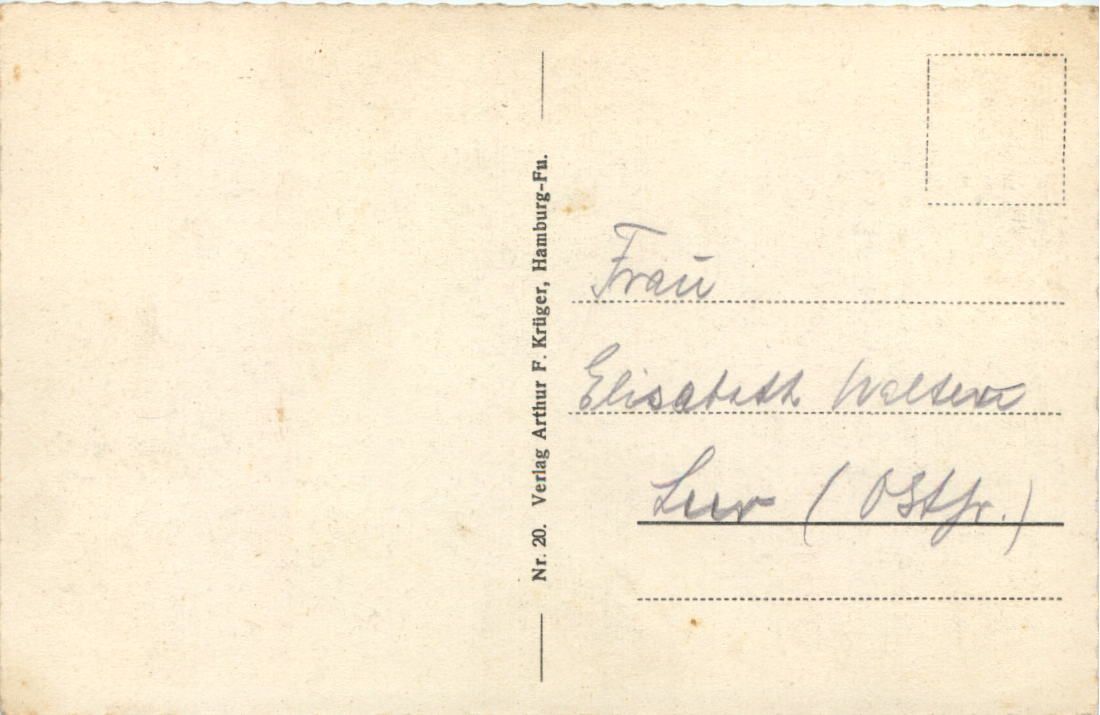 Nr. 20. Verlag Arthur F. Krüger, Hamburg-Fu.
Frau
Elisabeth
Leer (Ostfr.)